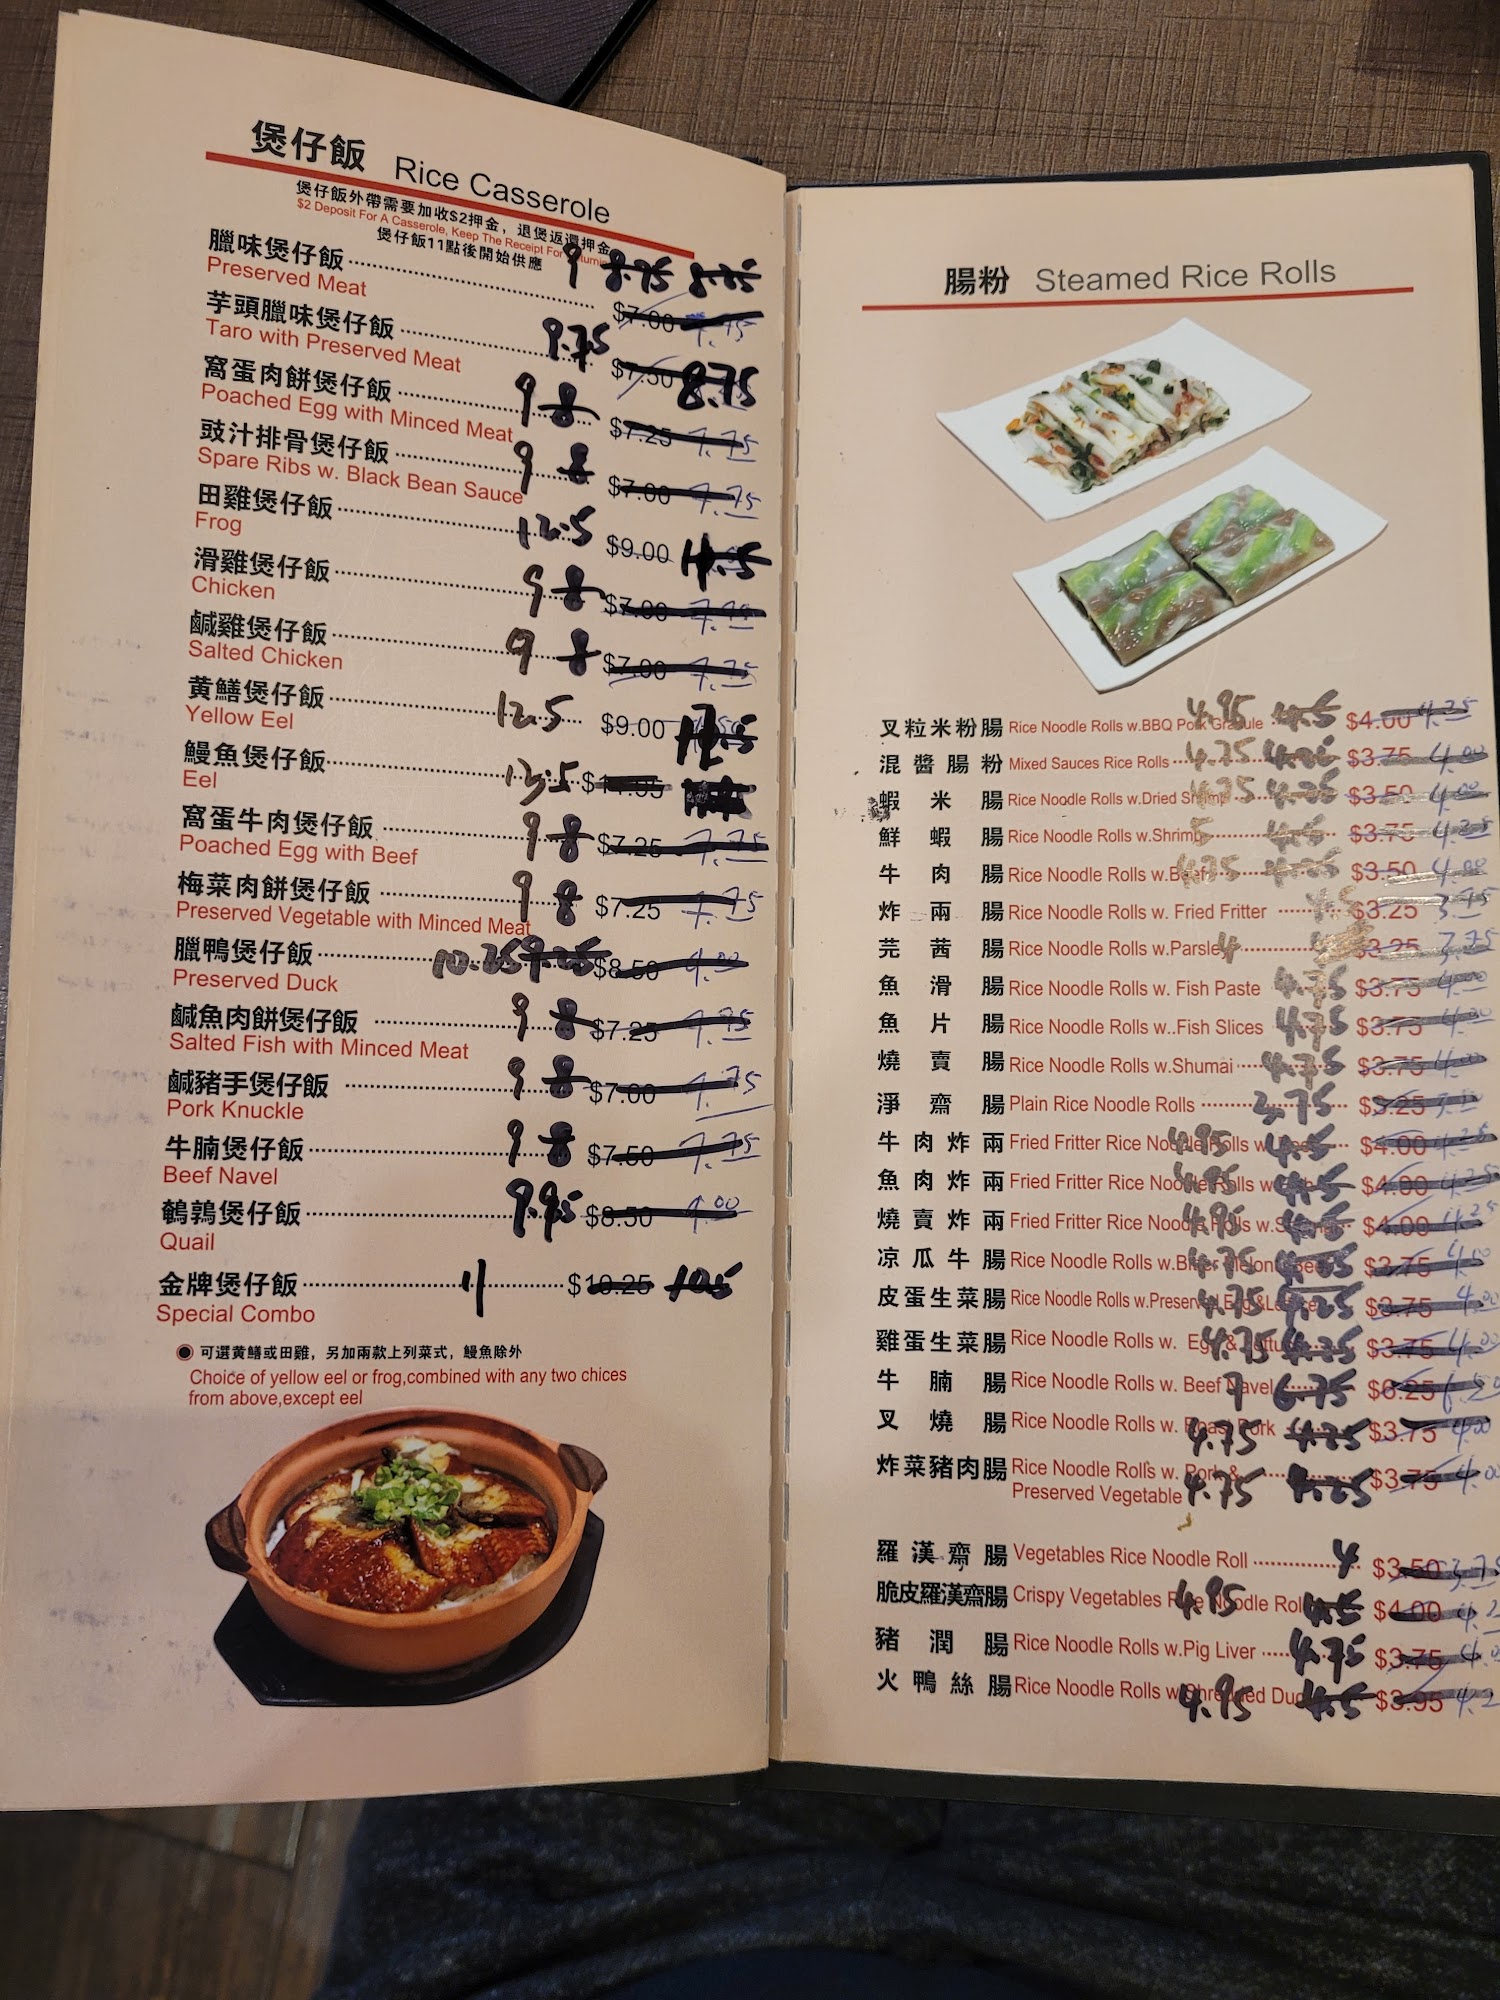 煲仔飯 Rice Casserole
煲仔飯外帶需要加收$2押金，退煲返還押金
$2 Deposit For A Casserole, Keep The Receipt For
煲仔飯11點後開始供應
臘味煲仔飯 9 8.75 8.25
Preserved Meat $7.00 7.75
芋頭臘味煲仔飯 9.75
Taro with Preserved Meat $7.50 8.75
窩蛋肉餅煲仔飯 9 8
Poached Egg with Minced Meat $7.25 7.75
豉汁排骨煲仔飯 9 8
Spare Ribs w. Black Bean Sauce $7.00 7.75
田雞煲仔飯 12.5 $9.00
Frog
滑雞煲仔飯 9 8 $7.00 7.75
Chicken
鹹雞煲仔飯 9 8 $7.00 7.75
Salted Chicken
黄鱔煲仔飯 12.5 $9.00
Yellow Eel
鰻魚煲仔飯 13.5
Eel
窩蛋牛肉煲仔飯 9 8 $7.25 7.75
Poached Egg with Beef
梅菜肉餅煲仔飯 9 8 $7.25 7.75
Preserved Vegetable with Minced Meat
臘鴨煲仔飯 10.25 9.25 $8.50 9.00
Preserved Duck
鹹魚肉餅煲仔飯 9 8 $7.25 7.75
Salted Fish with Minced Meat
鹹豬手煲仔飯 9 8 $7.00 7.75
Pork Knuckle
牛腩煲仔飯 9 8 $7.50 7.75
Beef Navel
鵪鶉煲仔飯 9.95 $8.50 9.00
Quail
金牌煲仔飯 11 $10.25 10.5
Special Combo
可選黄鱔或田雞，另加兩款上列菜式，鰻魚除外
Choice of yellow eel or frog,combined with any two chices
from above,except eel
腸粉 Steamed Rice Rolls
叉粒米粉腸 Rice Noodle Rolls w.BBQ Pork Granule 4.95 4.5 $4.00 4.25
混醬腸粉 Mixed Sauces Rice Rolls 4.75 4.25 $3.75 4.00
蝦米腸 Rice Noodle Rolls w.Dried Shrimp 4.75 4.25 $3.50 4.00
鮮蝦腸 Rice Noodle Rolls w.Shrimp 5 4.5 $3.75 4.25
牛肉腸 Rice Noodle Rolls w.Beef 4.75 4.25 $3.50 4.00
炸兩腸 Rice Noodle Rolls w. Fried Fritter 4.5 $3.25 3.75
芫茜腸 Rice Noodle Rolls w.Parsley $3.25 3.75
魚滑腸 Rice Noodle Rolls w. Fish Paste 4.75 $3.75 4.00
魚片腸 Rice Noodle Rolls w..Fish Slices 4.75 $3.75 4.00
燒賣腸 Rice Noodle Rolls w.Shumai 4.75 $3.75 4.00
淨齋腸 Plain Rice Noodle Rolls 3.75 $3.25
牛肉炸兩 Fried Fritter Rice Noodle Rolls w. 4.95 4.5 $4.00 4.25
魚肉炸兩 Fried Fritter Rice Noodle Rolls w. 4.95 4.5 $4.00 4.25
燒賣炸兩 Fried Fritter Rice Noodle Rolls w. 4.95 4.5 $4.00 4.25
凉瓜牛腸 Rice Noodle Rolls w.Bitter Melon 4.75 $3.75 4.00
皮蛋生菜腸 Rice Noodle Rolls w.Preserved Egg 4.75 4.25 $3.75 4.00
雞蛋生菜腸 Rice Noodle Rolls w. Egg & Lettuce 4.75 4.25 $3.75 4.00
牛腩腸 Rice Noodle Rolls w. Beef Navel 7 6.75 $6.25 6.50
叉燒腸 Rice Noodle Rolls w. Roast Pork 4.75 4.25 $3.75 4.00
炸菜豬肉腸 Rice Noodle Rolls w. Pork & $3.75 4.00
Preserved Vegetable 4.75 4.25
羅漢齋腸 Vegetables Rice Noodle Roll 4 $3.50 3.75
脆皮羅漢齋腸 Crispy Vegetables Rice Noodle Roll 4.95 4.5 $4.00
豬潤腸 Rice Noodle Rolls w.Pig Liver 4.75 $3.75
火鴨絲腸 Rice Noodle Rolls w.Shredded Duck 4.95 4.5 $3.95